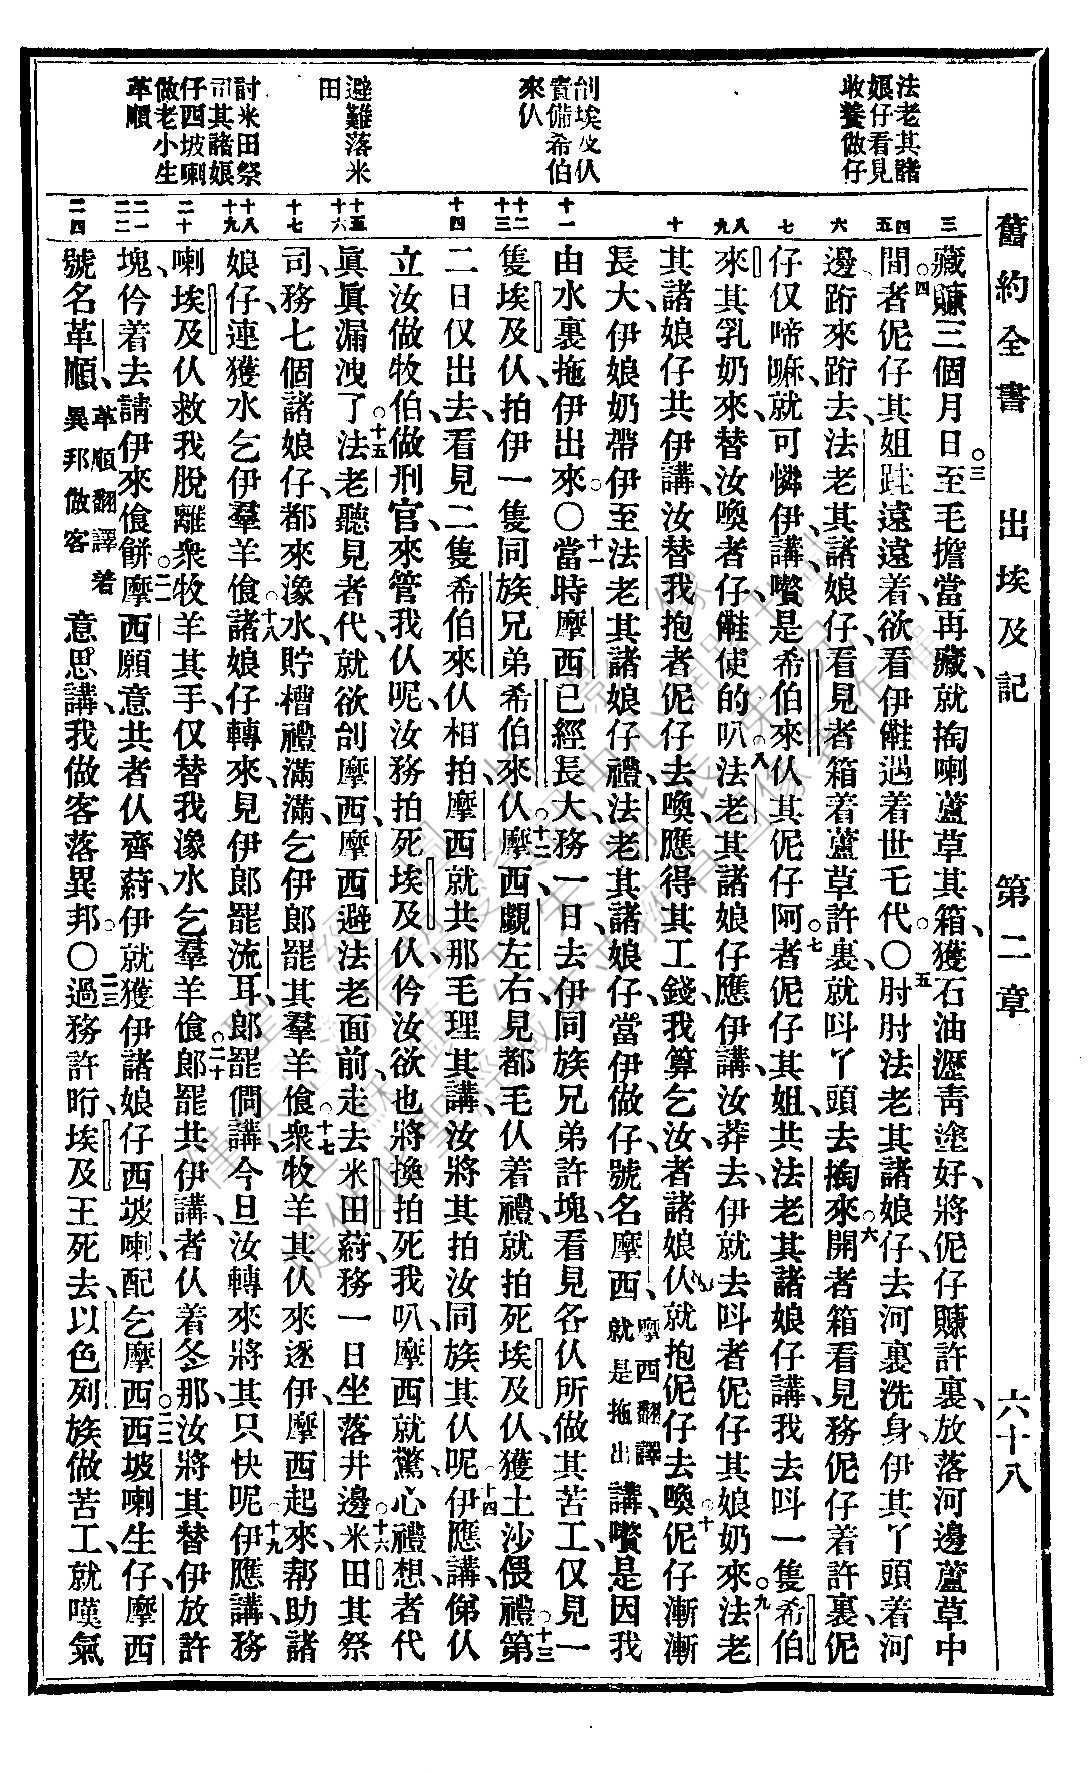 舊約全書 出埃及記 第二章 六十八
法老其諸
娘仔看見
收養做仔
刣埃及伩
責備希伯
來伩
避難落米
田
討米田祭
司其諸娘
仔西坡喇
做老小生
革順
三
四
五
六
七
八
九
十
十一
十二
十三
十四
十五
十六
十七
十八
十九
二十
二一
二二
二四
藏賺三個月日三至毛擔當再藏、就掏喇蘆草其箱、獲石油瀝青塗好、將伲仔賺許裏、放落河邊蘆草中
間四者伲仔其姐跬遠遠着、欲看伊㒰遇着世乇代○五肘肘法老其諸娘仔、去河裏洗身、伊其丫頭着河
邊跡來跡去、法老其諸娘仔、看見者箱着蘆草許裏、就呌丫頭去掏來六開者箱、看見務伲仔着許裏、伲
仔仅啼嘛、就可憐伊、講、嚽是希伯來伩其伲仔阿七者伲仔其姐、共法老其諸娘仔講、我去呌一隻希伯
來其乳奶來、替汝喚者仔、㒰使的叭八法老其諸娘仔應伊講、汝莽去、伊就去呌者伲仔其娘奶來九法老
其諸娘仔共伊講、汝替我抱者伲仔去喚、應得其工錢、我算乞汝、者諸娘伩就抱伲仔去喚十伲仔漸漸
長大、伊娘奶帶伊至法老其諸娘仔禮、法老其諸娘仔、當伊做仔、號名摩西、摩西翻譯就是拖出講、嚽是因我
由水裏拖伊出來○十一當時摩西已經長大、務一日去伊同族兄弟許塊、看見各伩所做其苦工、仅見一
隻埃及伩、拍伊一隻同族兄弟希伯來伩十二摩西覷左右、見都毛伩着禮、就拍死埃及伩、獲土沙偎禮十三第
二日仅出去、看見二隻希伯來伩相拍、摩西就共那毛理其講、汝將其拍汝同族其伩呢十四伊應講、俤伩
立汝做牧伯、做刑官、來管我伩呢、汝務拍死埃及伩、伱汝欲也將換拍死我叭、摩西就驚、心禮想、者代
眞眞漏洩了十五法老聽見者代、就欲刣摩西、摩西避法老面前、走去米田、務一日坐落井邊十六米田其祭
司、務七個諸娘仔、都來潒水、貯槽禮滿滿、乞伊郎罷其羣羊飡十七衆牧羊其伩來逐伊、摩西起來、帮助諸
娘仔、連獲水乞伊羣羊飡十八諸娘仔轉來、見伊郎罷流耳、郎罷㑚講、今旦汝轉來將其只快呢十九伊應講、務
喇埃及伩救我脫離衆牧羊其手、仅替我潒水乞羣羊飡二十郎罷共伊講、者伩着冬那、汝將其替伊放許
塊、伱着去請伊來飡餅二一摩西願意共者伩齊蔚、伊就獲伊諸娘仔西坡喇、配乞摩西二二西坡喇生仔、摩西
號名革順、革順翻譯若異邦做客意思講、我做客落異邦○二三過務許昤、埃及王死去、以色列族做苦工、就嘆氣